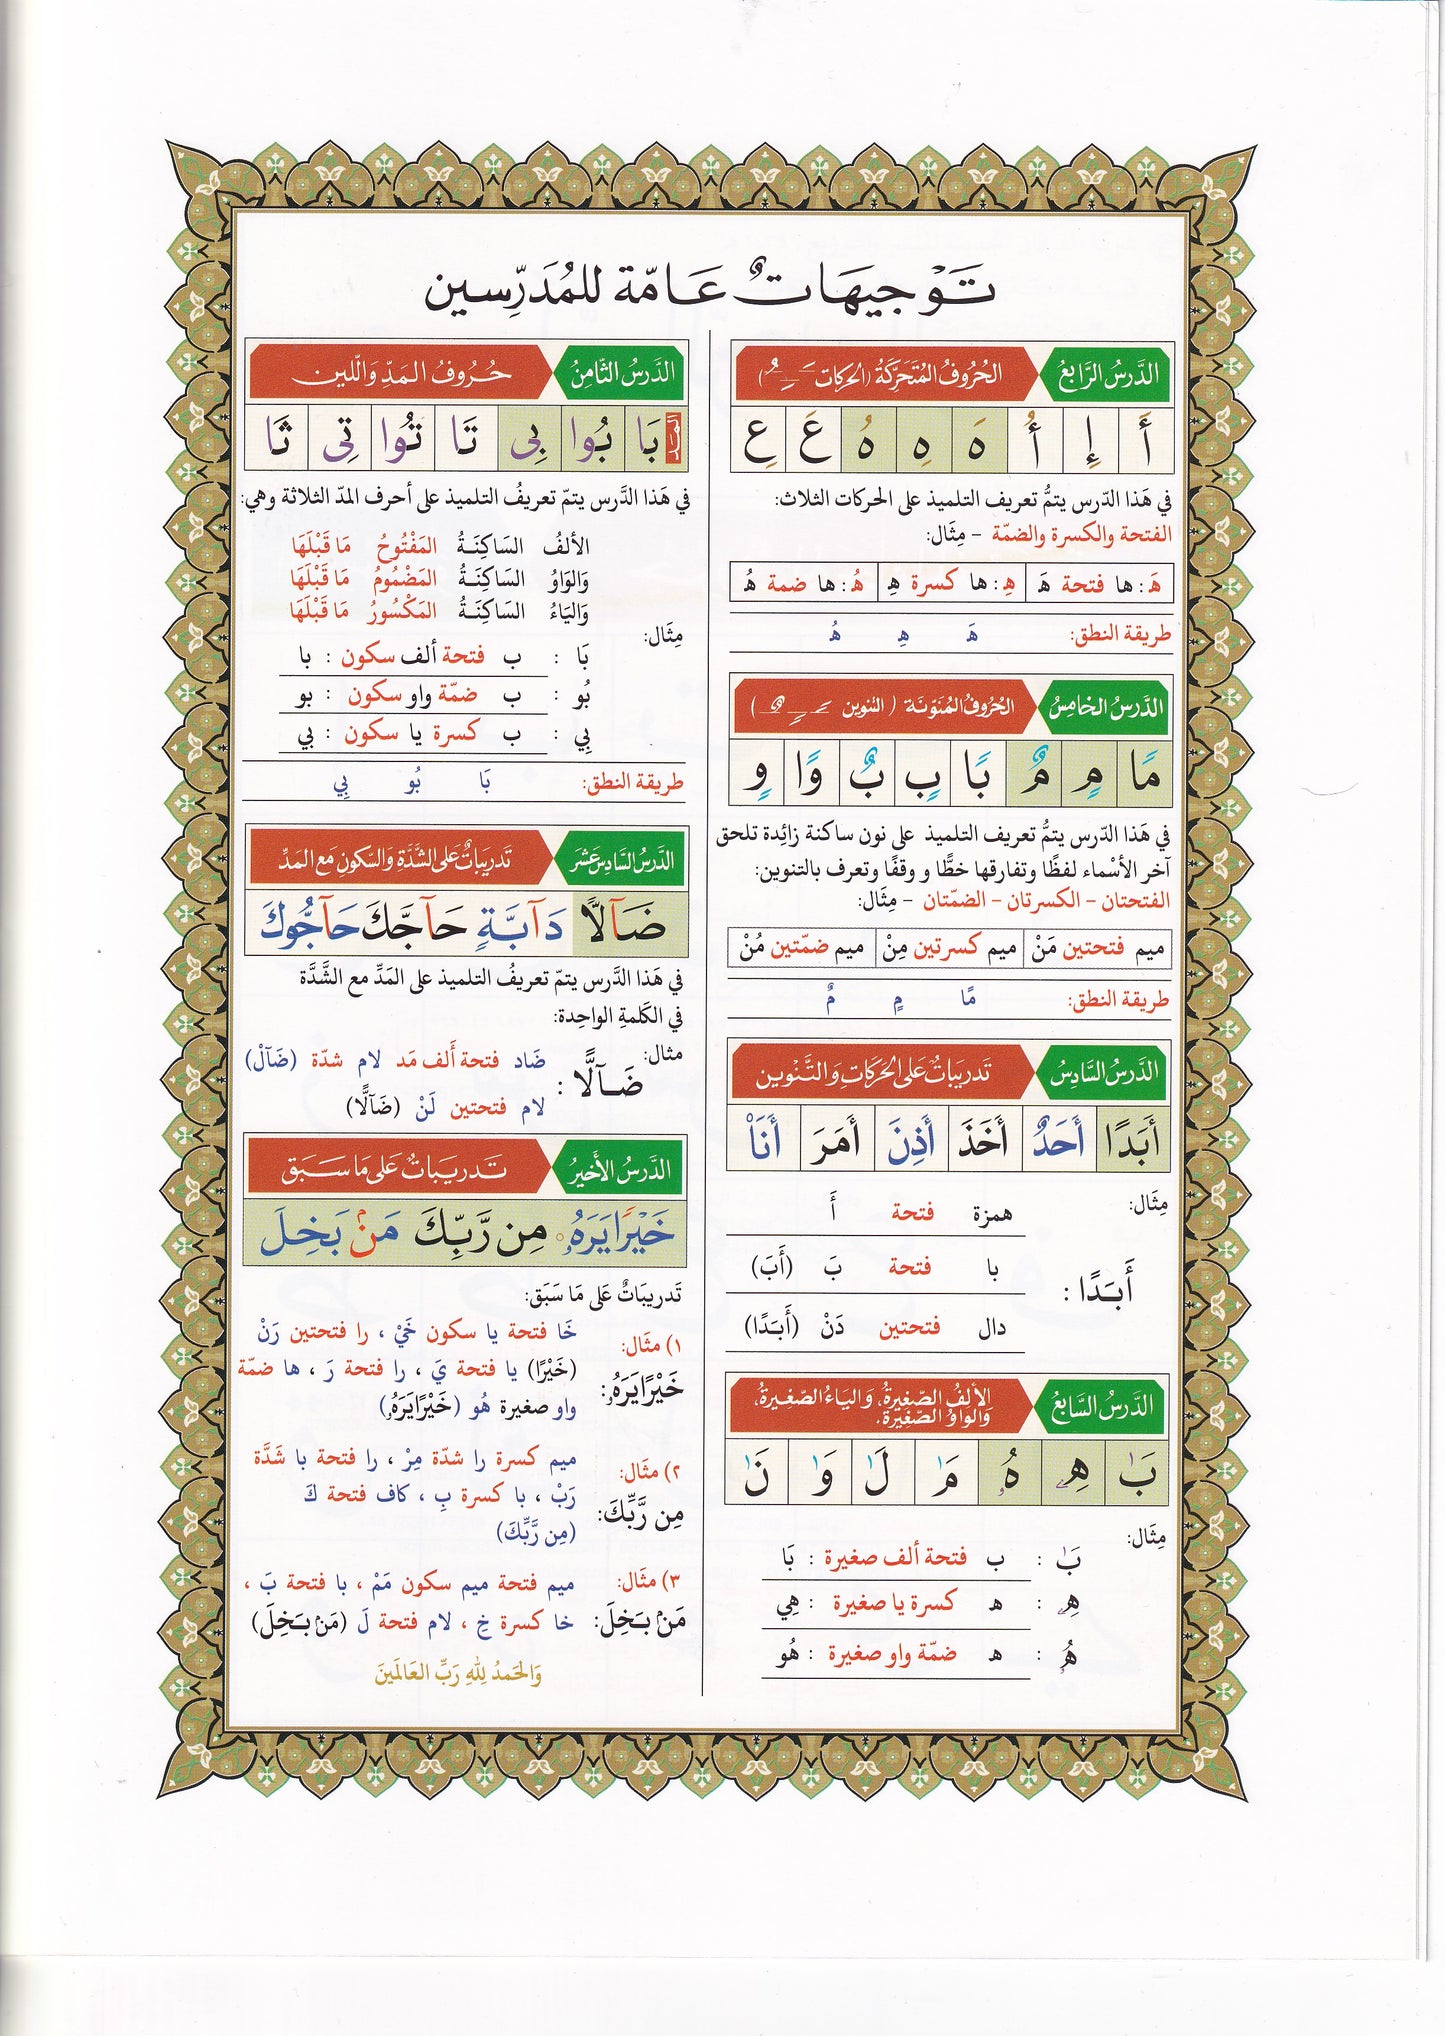 تَوْجيهَاتٌ عَامّة للمُدَرِّسين
الدَّرسُ الرَّابعُ
الحُرُوفُ المُتَحَرِّكَةُ (الحركات ـَـِـُ)
أَ إِ أُ هَ هِ هُ عَ عِ
في هَذا الدّرس يتمُّ تعريف التلميذ على الحركات الثلاث:
الفتحة والكسرة والضمّة – مِثَال:
هَ: ها فتحة هَ هِ: ها كسرة هِ هُ: ها ضمة هُ
طريقة النطق: هَ هِ هُ
الدَّرسُ الخامِسُ
الحُرُوفُ المُنَوّنَة (التنوين ـًـٍـٌ)
مًا مٍ مٌ بًا بٍ بٌ وًا وٍ
في هَذا الدّرس يتمُّ تعريف التلميذ على نون ساكنة زائِدة تلحق
آخر الأسْماء لفظًا وتفارقها خطًّا و وقفًا وتعرف بالتنوين:
الفتحتان – الكسرتان – الضمّتان – مِثَال:
ميم فتحتين مَنْ ميم كسرتين مِنْ ميم ضمّتين مُنْ
طريقة النطق: مًا مٍ مٌ
الدَّرسُ السَّادِسُ
تَدريَباتٌ عَلى الحَرَكاتِ وَالتَّنْوين
أَبَدًا أَحَدٌ أَخَذَ أَذِنَ أَمَرَ أَنَا۠
مِثَال:
همزة فتحة أَ
أَبَدًا :
با فتحة بَ (أَبَ)
دال فتحتين دَنْ (أَبَدًا)
الدَّرسُ السَّابعُ
الألِفُ الصَّغِيرَةُ، وَاليَاءُ الصَّغِيرةُ،
وَالوَاوُ الصَّغِيرَة.
بَٰ هِۦ هُۥ مَٰ لَٰ وَٰ نَٰ
مِثَال:
بَٰ : ب فتحة ألف صغيرة : بَا
هِۦ : هـ كسرة يا صغيرة : هِي
هُۥ : هـ ضمّة واو صغيرة : هُو
الدَّرسُ الثَّامنُ
حُرُوفُ المَدِّ وَاللّين
المَد بَا بُوا بِى تَا تُوا تِى ثَا
في هَذا الدَّرس يتمّ تعريفُ التلميذ على أحرف المدّ الثلاثة وهي:
الألفُ السَاكِنَةُ المَفْتُوحُ مَا قَبْلَهَا
وَالوَاوُ السَاكِنَةُ المَضْمُومُ مَا قَبْلَهَا
وَاليَاءُ السَاكِنَةُ المَكْسُورُ مَا قَبْلَهَا
مِثَال:
بَا : ب فتحة ألف سكون : با
بُو : ب ضمّة واو سكون : بو
بِي : ب كسرة يا سكون : بي
طريقة النطق: بَا بُو بِي
الدَّرسُ السَّادسَ عَشَر
تَدريبَاتٌ عَلى الشَّدَّةِ وَالسّكونِ مَع المَدِّ
ضَآلًّا دَآبَّةٍ حَآجَّكَ حَآجُّوكَ
في هَذا الدَّرس يتمّ تعريفُ التلميذ على المَدِّ مع الشَّدَّة
في الكَلمةِ الواحِدة:
مثال: ضَاد فتحة أَلف مَد لام شدّة (ضَآلْ)
ضَآلًّا :
لام فتحتين لَنْ (ضَآلًّا)
الدَّرسُ الأَخيرُ
تَدريَباتٌ عَلى مَا سَبَق
خَيْرًا يَرَهُۥ مِن رَّبِّكَ مَنۢ بَخِلَ
تَدريبَاتٌ عَلى مَا سَبَق:
١) مثَال: خَا فتحة يا سكون خَيْ ، را فتحتين رَنْ
خَيْرًا يَرَهُۥ: (خَيْرًا) يا فتحة يَ ، را فتحة رَ ، ها ضمّة
واو صغيرة هُو (خَيْرًا يَرَهُۥ)
٢) مثَال: ميم كسرة را شدّة مِرْ ، را فتحة با شَدَّة
مِن رَّبِّكَ: رَبْ ، با كسرة بِ ، كاف فتحة كَ
(مِن رَّبِّكَ)
٣) مثَال: ميم فتحة ميم سكون مَمْ ، با فتحة بَ ،
مَنۢ بَخِلَ: خا كسرة خِ ، لام فتحة لَ (مَنۢ بَخِلَ)
وَالحَمدُ للهِ رَبِّ العَالَمَينَ